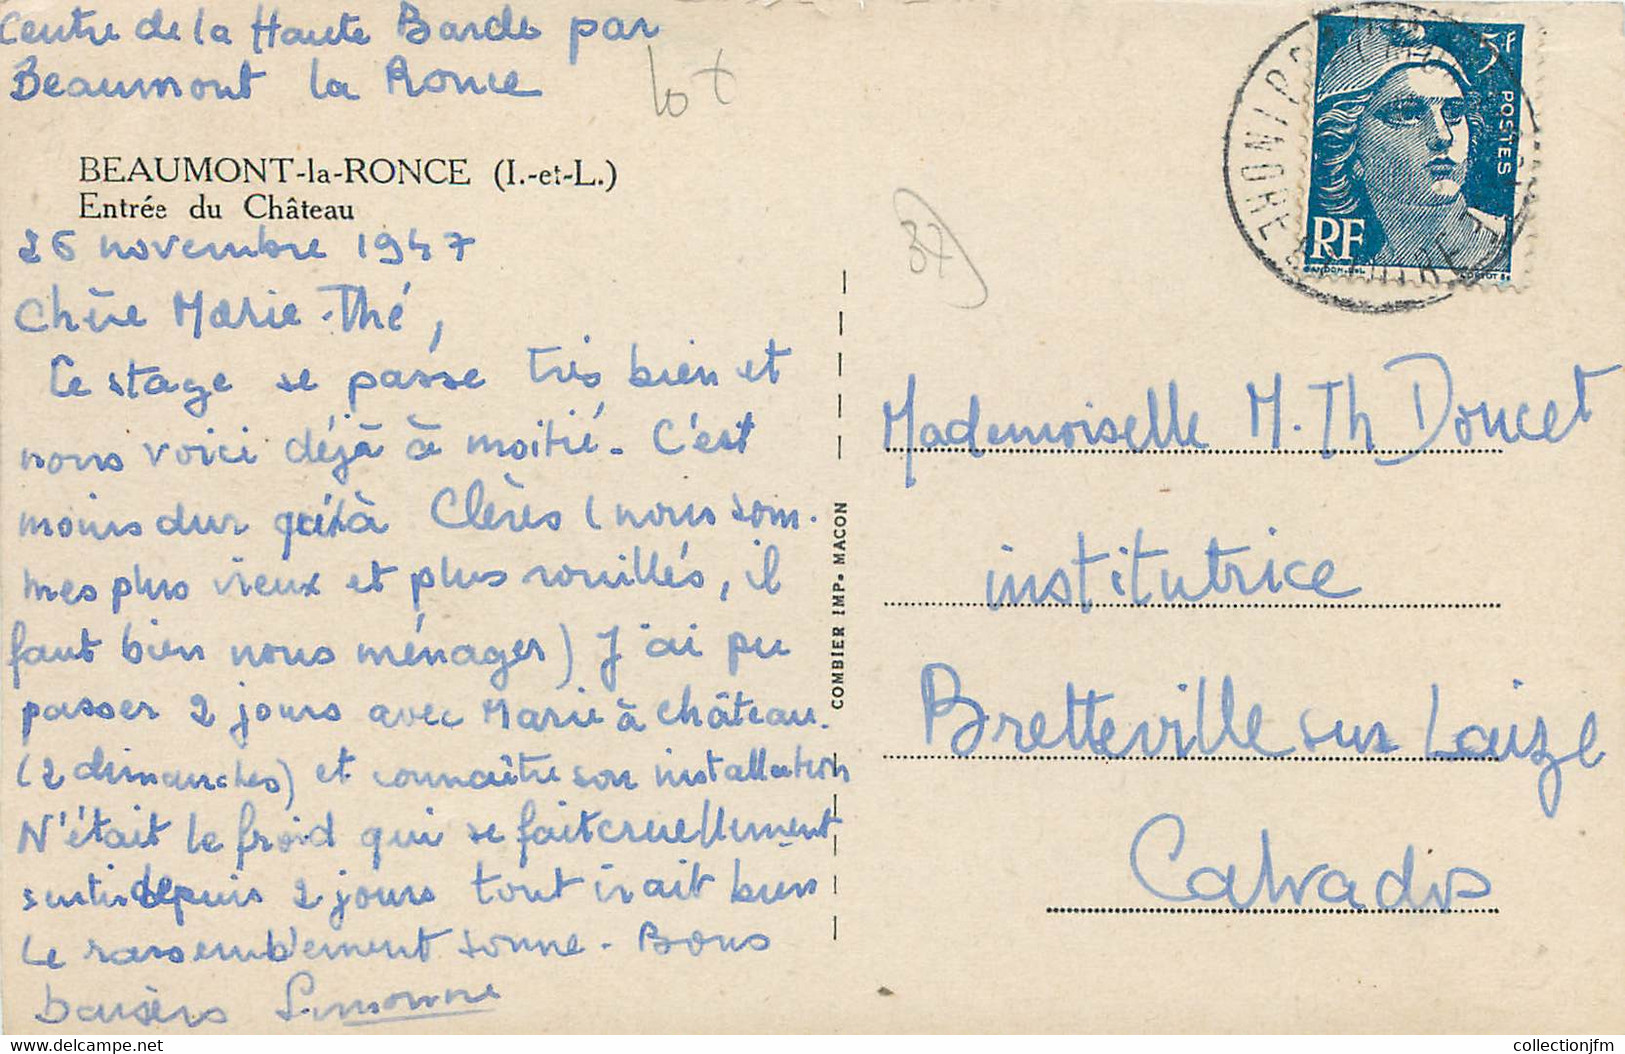 Centre de la Haute Barde par
Beaumont la Ronce
10 +
BEAUMONT-la-RONCE (I.-et-L.)
Entrée du Château
26 novembre 1947
Chère Marie-Thé,
Ce stage se passe très bien et
nous voici déjà à moitié. C'est
moins dur qu'à Clères (nous som-
mes plus vieux et plus rouillés, il
faut bien nous ménager) J'ai pu
passer 2 jours avec Marie à Château.
(2 dimanches) et connaître son installation
N'était le froid qui se fait cruellement
sentir depuis 2 jours tout irait bien
Le rassemblement sonne. Bons
baisers Simonne
COMBIER IMP. MACON
37
5F
POSTES
RF
GANDON.DEL
INDRE ET LOIRE
Mademoiselle M. Th Doucet
institutrice
Bretteville sur Laize
Calvados
collectionjfm